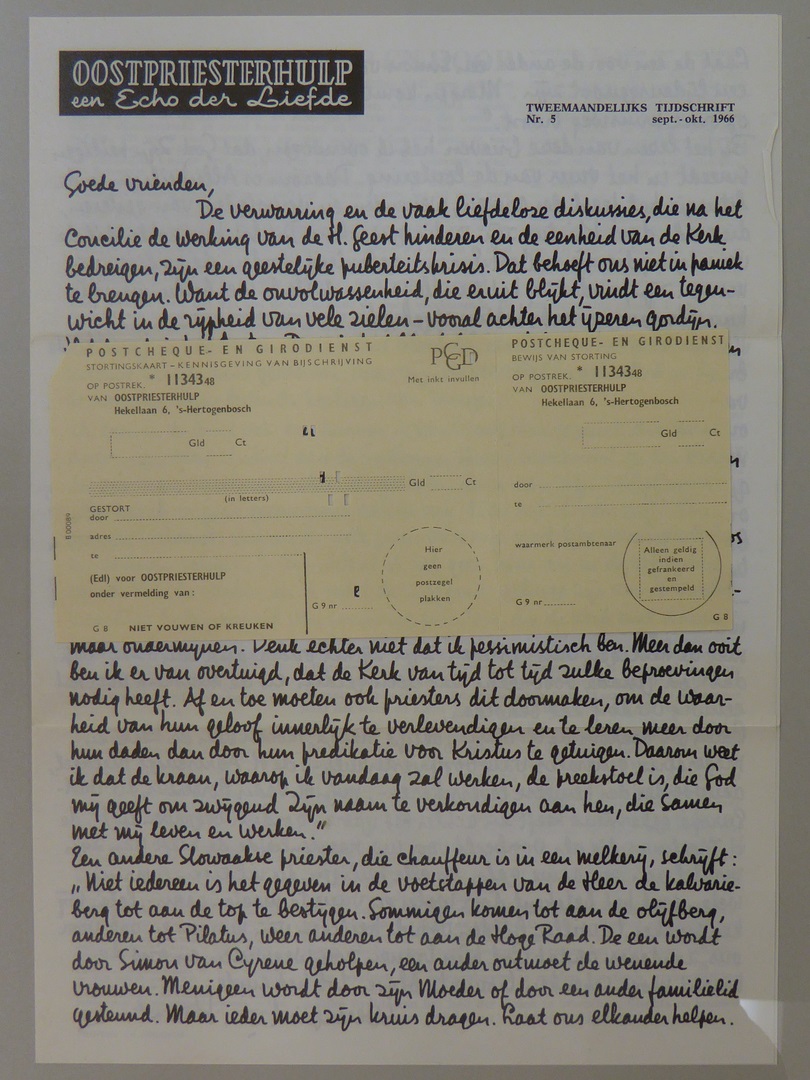 OOSTPRIESTERHULP
een Echo der Liefde
TWEEMAANDELIJKS TIJDSCHRIFT
Nr. 5 sept.-okt. 1966
Goede vrienden,
De verwarring en de vaak liefdeloze diskussies, die na het
Concilie de werking van de H. Geest hinderen en de eenheid van de Kerk
bedreigen, zijn een geestelijke puberteitskrisis. Dat behoeft ons niet in paniek
te brengen. Want de onvolwassenheid, die eruit blijkt, vindt een tegen-
wicht in de rijpheid van vele zielen – vooral achter het ijzeren gordijn.
POSTCHEQUE- EN GIRODIENST
STORTINGSKAART - KENNISGEVING VAN BIJSCHRIJVING
OP POSTREK. * 1134348
VAN OOSTPRIESTERHULP
Hekellaan 6, 's-Hertogenbosch
PCGD
Met inkt invullen
Gld Ct
Gld Ct
(in letters)
GESTORT
door
adres
te
(Edl) voor OOSTPRIESTERHULP
onder vermelding van :
G 9 nr
Hier
geen
postzegel
plakken
G 8 NIET VOUWEN OF KREUKEN
POSTCHEQUE- EN GIRODIENST
BEWIJS VAN STORTING
OP POSTREK. * 1134348
VAN OOSTPRIESTERHULP
Hekellaan 6, 's-Hertogenbosch
Gld Ct
door
te
waarmerk postambtenaar
Alleen geldig
indien
gefrankeerd
en
gestempeld
G 9 nr
G 8
maar ondermijnen. Denk echter niet dat ik pessimistisch ben. Meer dan ooit
ben ik er van overtuigd, dat de Kerk van tijd tot tijd zulke beproevingen
nodig heeft. Af en toe moeten ook priesters dit doormaken, om de waar-
heid van hun geloof innerlijk te verlevendigen en te leren meer door
hun daden dan door hun predikatie voor Kristus te getuigen. Daarom weet
ik dat de kraan, waarop ik vandaag zal werken, de preekstoel is, die God
mij geeft om zwijgend Zijn naam te verkondigen aan hen, die samen
met mij leven en werken."
Een andere Slowaakse priester, die chauffeur is in een melkerij, schrijft :
„Niet iedereen is het gegeven in de voetstappen van de Heer de kalvarie-
berg tot aan de top te bestijgen. Sommigen komen tot aan de olijfberg,
anderen tot Pilatus, weer anderen tot aan de Hoge Raad. De een wordt
door Simon van Cyrene geholpen, een ander ontmoet de wenende
vrouwen. Menigeen wordt door zijn Moeder of door een ander familielid
gesteund. Maar ieder moet zijn kruis dragen. Laat ons elkander helpen.